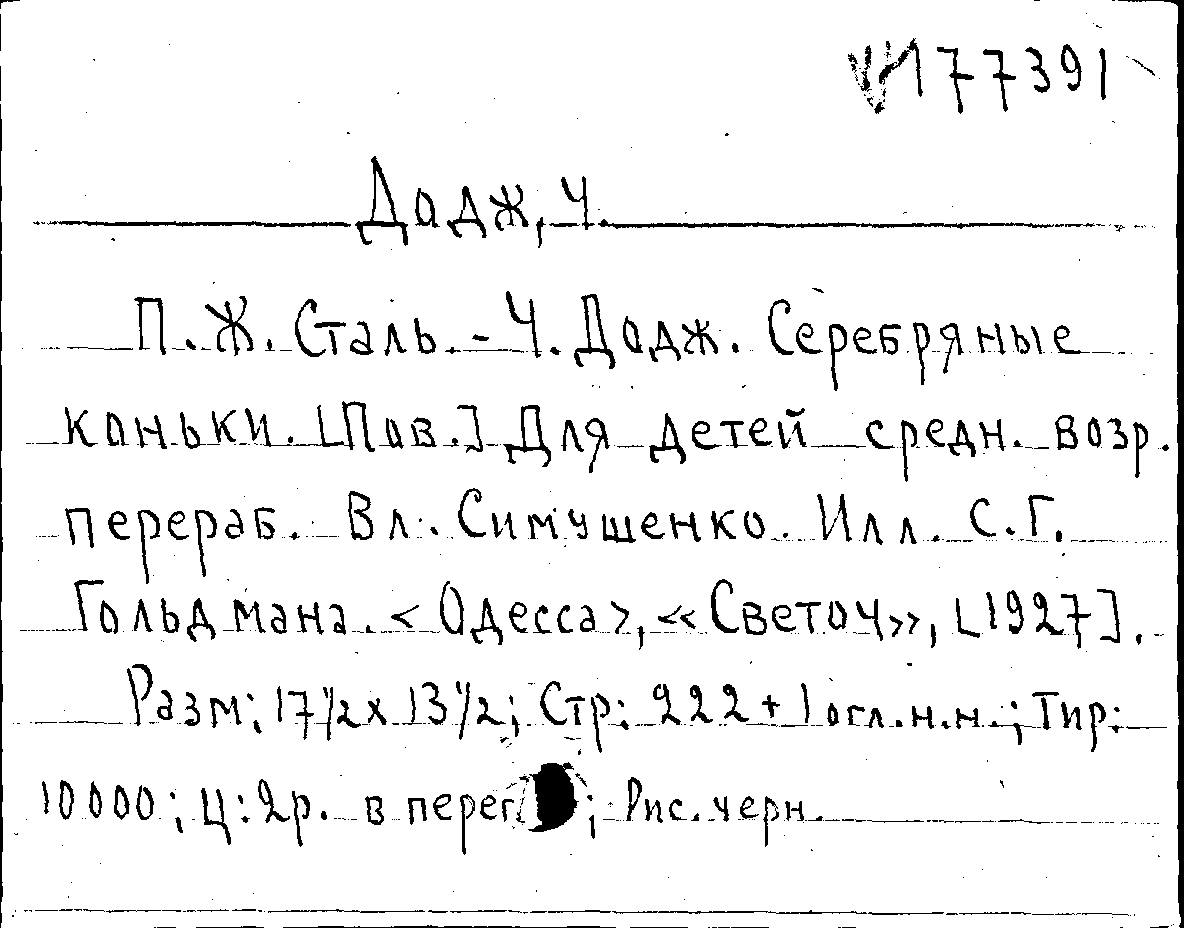 177391
Додж, Ч.
П. Ж. Сталь. - Ч. Додж. Серебряные
коньки. [Пов.] Для детей средн. возр.
перераб. Вл. Симушенко. Илл. С. Г.
Гольдмана. <Одесса>, «Светоч», [1927].
Разм: 17 1/2 x 13 1/2; Стр: 222 + 1 огл. н. н.; Тир:
10000; Ц: 2р. в ; Рис. черн.